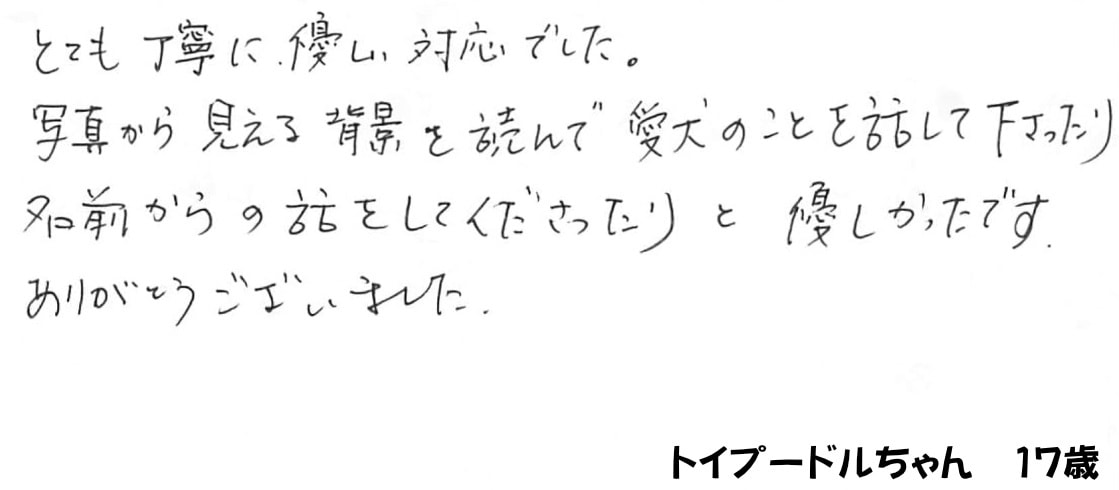 とても丁寧に、優しい対応でした。
写真から見える背景を読んで愛犬のことを話して下さったり
名前からの話をしてくださったりと優しかったです.
ありがとうございました.
トイプードルちゃん　17歳